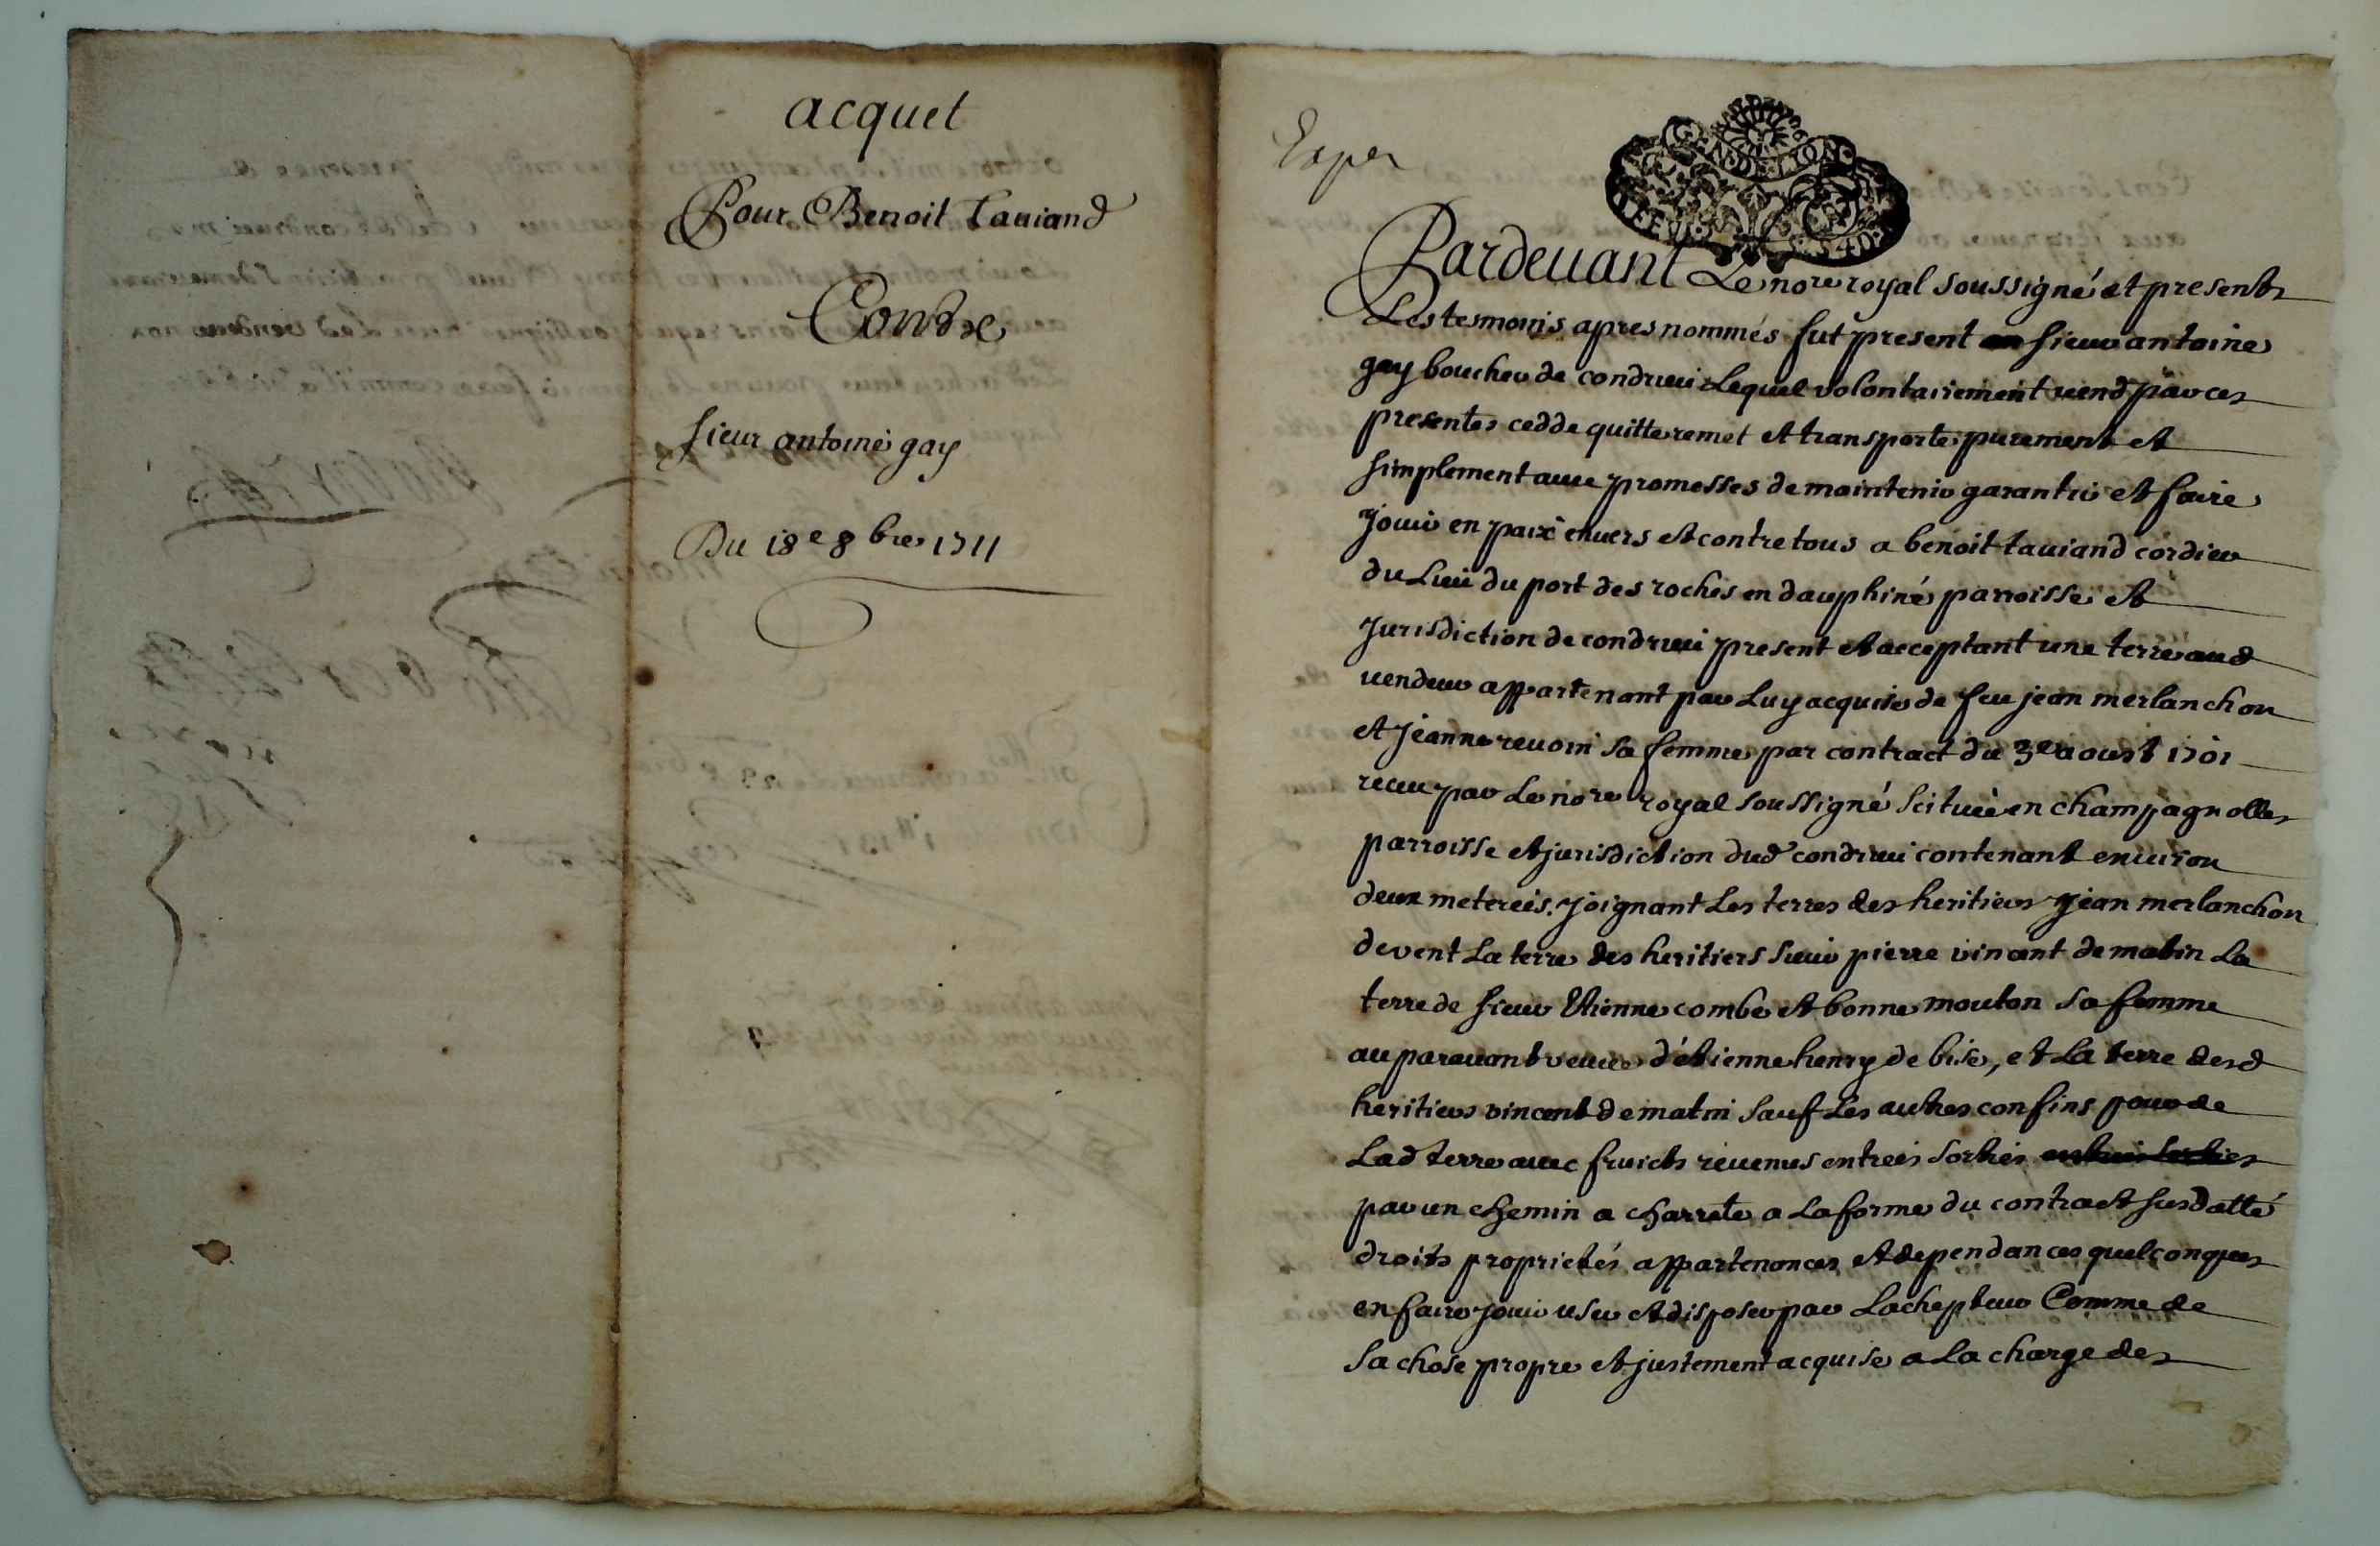 acquet
Pour Benoit Tauiand
Contre
sieur antoine gay
Du 18e 8bre 1711
Exper
Pardeuant Le nore royal soussigné et presents
Les tesmoins apres nommés fut present sieur antoine
gay boucher de condrieu Lequel volontairement uend par ces
presentes cedde quitte remet et transporte purement et
simplement auec promesses de maintenir garantir et faire
jouir en paix enuers et contre tous a benoit tauiand cordier
du Lieu du port des roches en dauphiné parroisse et
Jurisdiction de condrieu present et acceptant une terre aud
uendeur appartenant par Luy acquise de feu jean merlanchon
et Jeanne reuoin sa femme par contract du 3e aoust 1701
receu par Le nore royal soussigné scituée en champagnolles
parroisse et jurisdiction dud condrieu contenant enuiron
deux meterées. Joignant Les terres des heritiers jean merlanchon
de vent La terre des heritiers sieur pierre vincent de matin La
terre de sieur Etienne combe et bonne mouton sa femme
auparauant veuue d'étienne henry de bise, et La terre desd
heritiers vincent de matin sauf Les autres confins de
Lad terre auec fruicts reuenus entrées sorties
par un chemin a charrete a La forme du contract susdatté
droits proprietés appartenances et dependances quelconques
en faire jouir user et disposer par Lachepteur Comme de
sa chose propre et justement acquise a La charge des